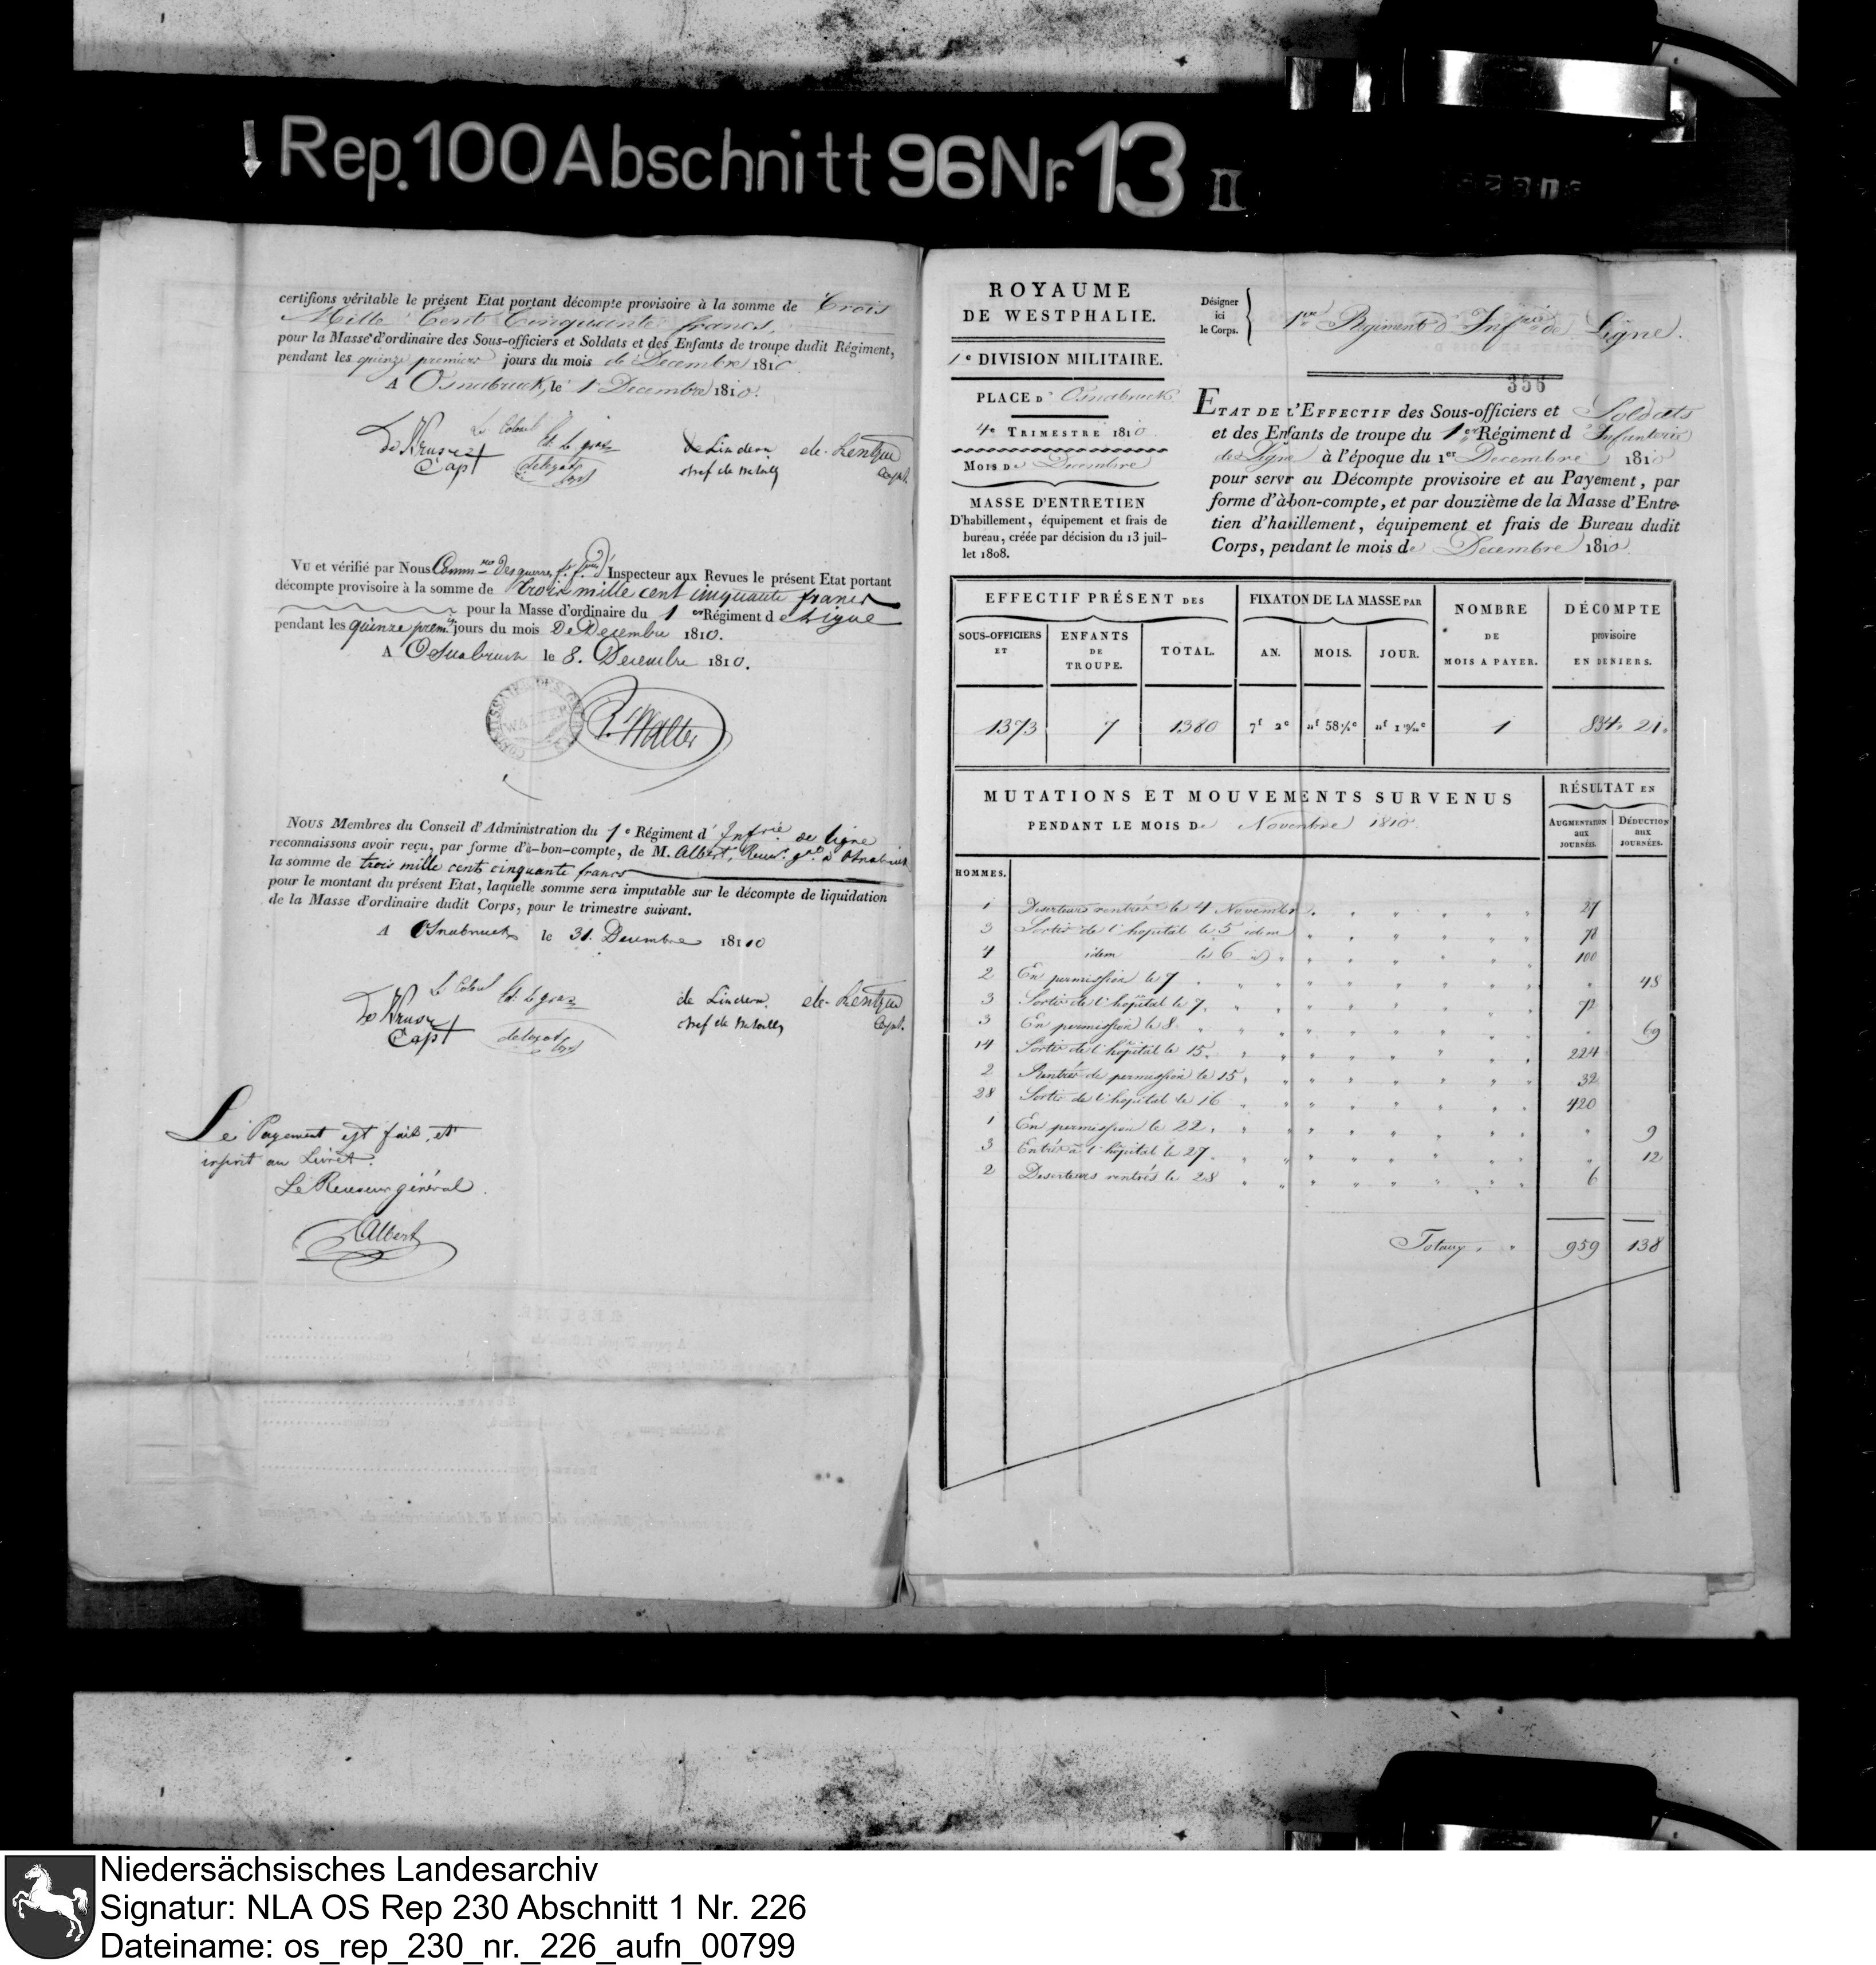 Rep. 100 Abschnitt 96 Nr. 13 II
certifions véritable le présent Etat portant décompte provisoire à la somme de Trois
Mille Cent Cinquante francs,
pour la Masse d'ordinaire des Sous-officiers et Soldats et des Enfants de troupe dudit Régiment,
pendant les quinze premiers jours du mois de Decembre 1810
A Osnabruck, le 1 Decembre 1810.
Le Colonel
de Linden
Capt
chef de Bataill
Vu et vérifié par Nous Commre des guerres, Inspecteur aux Revues le présent Etat portant
décompte provisoire à la somme de trois mille cent cinquante francs
pour la Masse d'ordinaire du 1er Régiment de Ligne
pendant les quinze prem. jours du mois De Decembre 1810.
A Osnabruck le 8. Decembre 1810.
WALTER
P. Walter
Nous Membres du Conseil d'Administration du 1e Régiment d'Infrie de ligne
reconnaissons avoir reçu, par forme d'à-bon-compte, de M. Albert, Recev. gal à Osnabruck
la somme de trois mille cent cinquante francs
pour le montant du présent Etat, laquelle somme sera imputable sur le décompte de liquidation
de la Masse d'ordinaire dudit Corps, pour le trimestre suivant.
A Osnabruck le 31. Decembre 18110
Le Colonel
de Linden
Capt
chef de Bataill
Le Payement est fait, et
inscrit au Livret.
Le Receveur général
Albert
ROYAUME
DE WESTPHALIE.
1e DIVISION MILITAIRE.
PLACE d'Osnabruck
4e TRIMESTRE 1810
MOIS de Decembre
MASSE D'ENTRETIEN
D'habillement, équipement et frais de
bureau, créée par décision du 13 juil-
let 1808.
Désigner
ici
le Corps.
1er Regiment d'Infrie de Ligne.
356
ETAT DE L'EFFECTIF des Sous-officiers et Soldats
et des Enfants de troupe du 1er Régiment d'Infanterie
de Ligne à l'époque du 1er Decembre 1810
pour servr au Décompte provisoire et au Payement, par
forme d'à-bon-compte, et par douzième de la Masse d'Entre-
tien d'habillement, équipement et frais de Bureau dudit
Corps, pendant le mois de Decembre 1810
EFFECTIF PRÉSENT DES
FIXATON DE LA MASSE PAR
NOMBRE
DE
MOIS A PAYER.
DÉCOMPTE
provisoire
EN DENIERS.
SOUS-OFFICIERS
ET
ENFANTS
DE
TROUPE.
TOTAL.
AN.
MOIS.
JOUR.
1373 7 1380 7f 2c 1 834. 21.
MUTATIONS ET MOUVEMENTS SURVENUS
PENDANT LE MOIS De Novembre 1810
RÉSULTAT EN
AUGMENTATION
aux
JOURNÉES.
DÉDUCTION
aux
JOURNÉES.
HOMMES.
1 Deserteurs rentrés le 4 Novembre 27
3 Sortis de l'hopital le 5 idem 78
4 idem le 6 100
2 En permission le 7 48
3 Sortis de l'hôpital le 7. 72
3 En permission le 8 69
14 Sortis de l'hôpital le 15. 224
2 Rentrés de permission le 15. 32
28 Sortis de l'hopital le 16 420
1 En permission le 22. 9
3 Entrés à l'hôpital le 27. 12
2 Deserteurs rentrés le 28 6
Totaux 959 138
Niedersächsisches Landesarchiv
Signatur: NLA OS Rep 230 Abschnitt 1 Nr. 226
Dateiname: os_rep_230_nr._226_aufn_00799